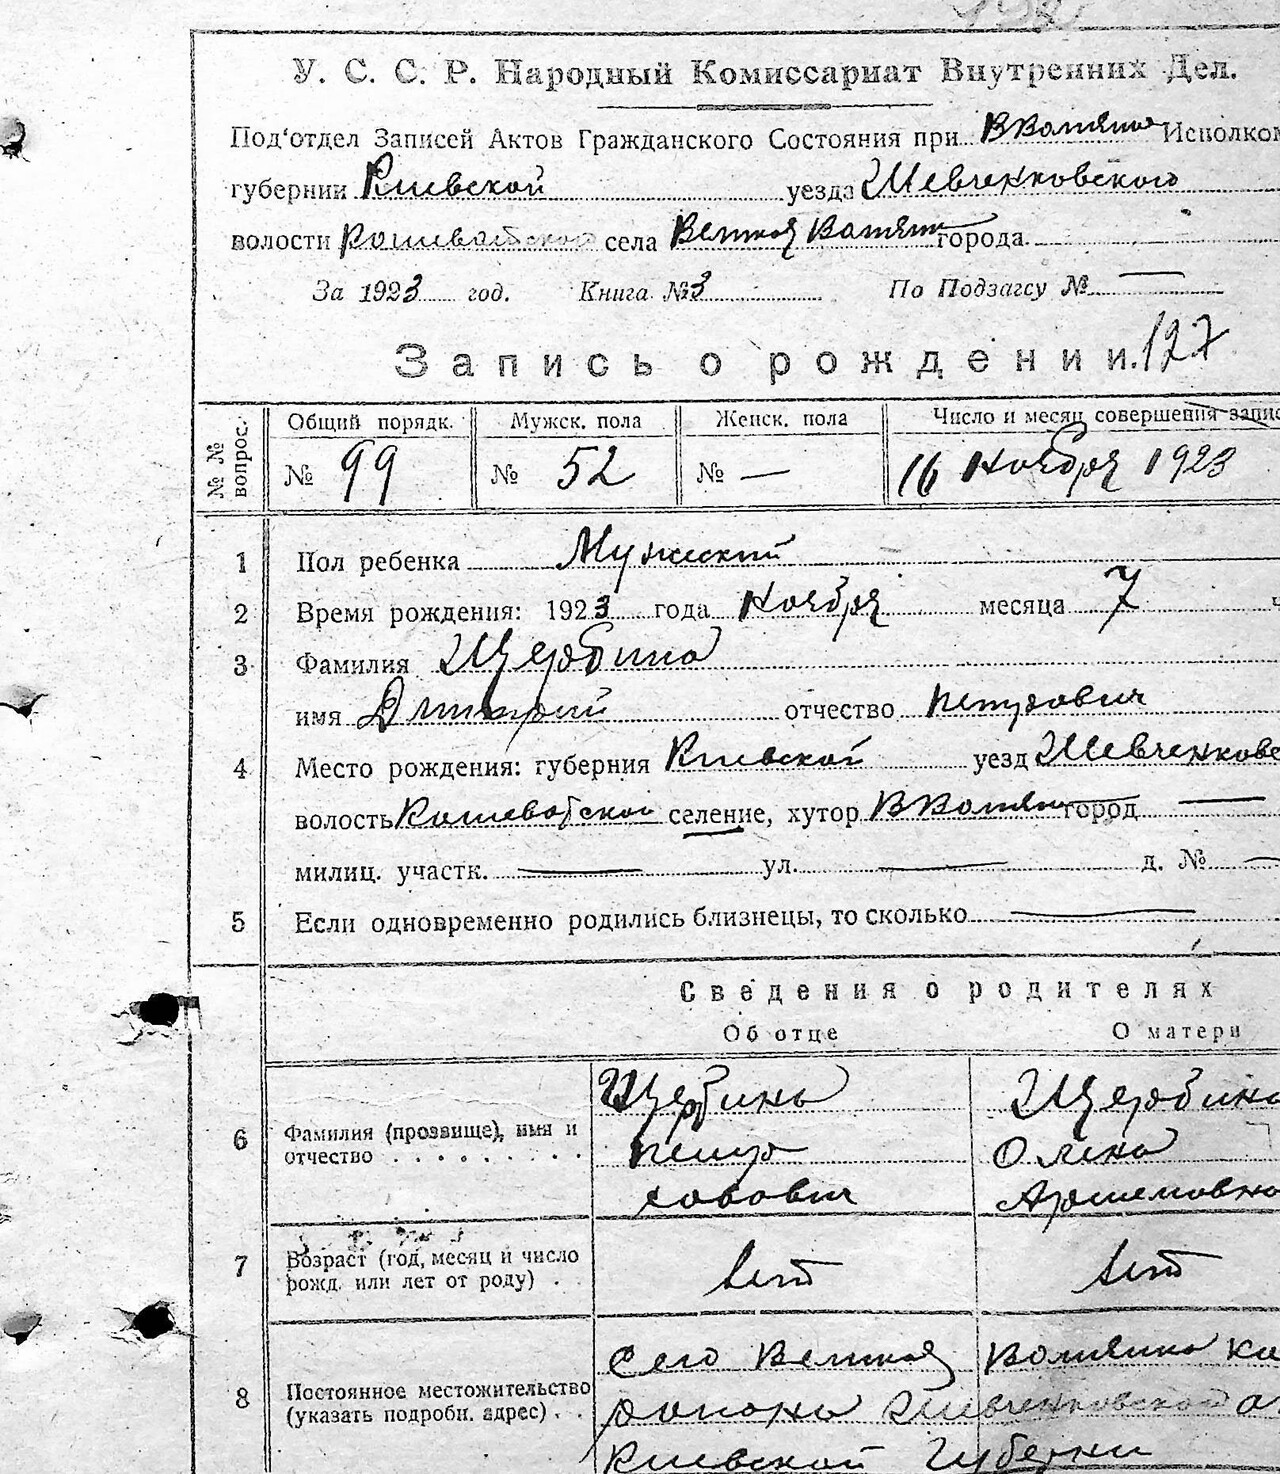 У. С. С. Р. Народный Комиссариат Внутренних Дел.
Под‘отдел Записей Актов Гражданского Состояния при Исполком
губернии Киевской уезда Шевченковского
волости села Великая города
За 1923 год. Книга №3 По Подзагсу № —
Запись о рождении. 127
№№ вопрос. Общий порядк. Мужск. пола Женск. пола Число и месяц совершения запис
№ 99 № 52 № — 16 Ноября 1923
1 Пол ребенка Мужской
2 Время рождения: 1923 года Ноября месяца 7 ч
3 Фамилия Щербина
имя Дмитрий отчество Петрович
4 Место рождения: губерния Киевской уезд Шевченковс
волость селение, хутор город —
милиц. участк. — ул. — д. № —
5 Если одновременно родились близнецы, то сколько —
Сведения о родителях
Об отце О матери
6 Фамилия (прозвище), имя и отчество
Щербина Щербина
Петро Олена
Савович Артемовна
7 Возраст (год, месяц и число рожд. или лет от роду)
лет лет
8 Постоянное местожительство (указать подробн. адрес)
Село Великая
района Шевченковской
Киевской Губернии